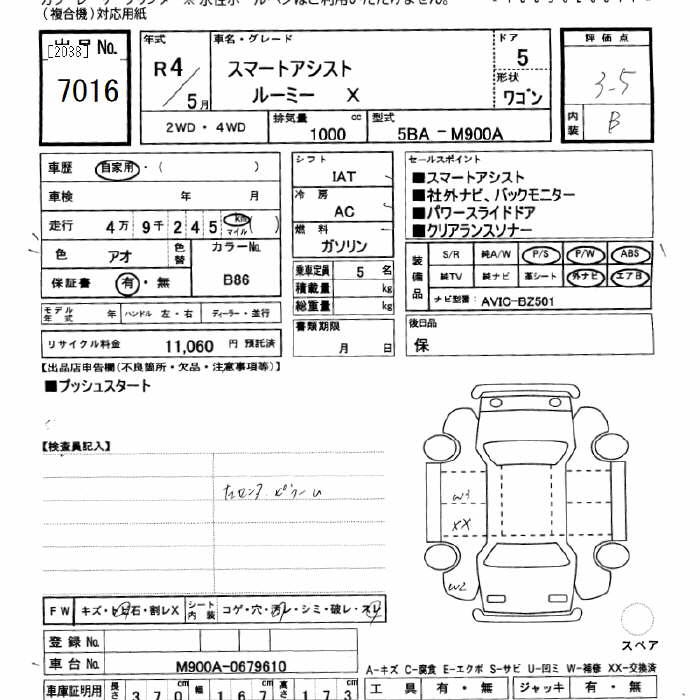 (複合機)対応用紙
出品No. [2038]
7016
年式 R4/5月
車名・グレード
スマートアシスト
ルーミー X
ドア 5
形状 ワゴン
2WD・4WD
排気量 1000 cc
型式 5BA-M900A
評価点 3.5
内装 B
車歴 自家用・( )
車検 年 月
走行 4万9千245 km マイル ( )
色 アオ 色替 カラーNo. B86
保証書 有・無
モデル年式 年 ハンドル 左・右 ディーラー・並行
リサイクル料金 11,060 円 預託済
シフト IAT
冷房 AC
燃料 ガソリン
乗車定員 5 名
積載量 kg
総重量 kg
書類期限 月 日
セールスポイント
■スマートアシスト
■社外ナビ、バックモニター
■パワースライドドア
■クリアランスソナー
装備品 S/R 純A/W P/S P/W ABS
純TV 純ナビ 革シート 外ナビ エアB
ナビ型番: AVIC-BZ501
後日品
保
【出品店申告欄(不良箇所・欠品・注意事項等)】
■プッシュスタート
【検査員記入】
W3
XX
W2
FW キズ・ヒビ・石・割レX シート内装 コゲ・穴・汚レ・シミ・破レ・スレ
登録No.
車台No. M900A-0679610
車庫証明用 長さ 370 cm 幅 167 cm 高さ 173 cm
スペア
A-キズ C-腐食 E-エクボ S-サビ U-凹ミ W-補修 XX-交換済
工具 有・無 ジャッキ 有・無